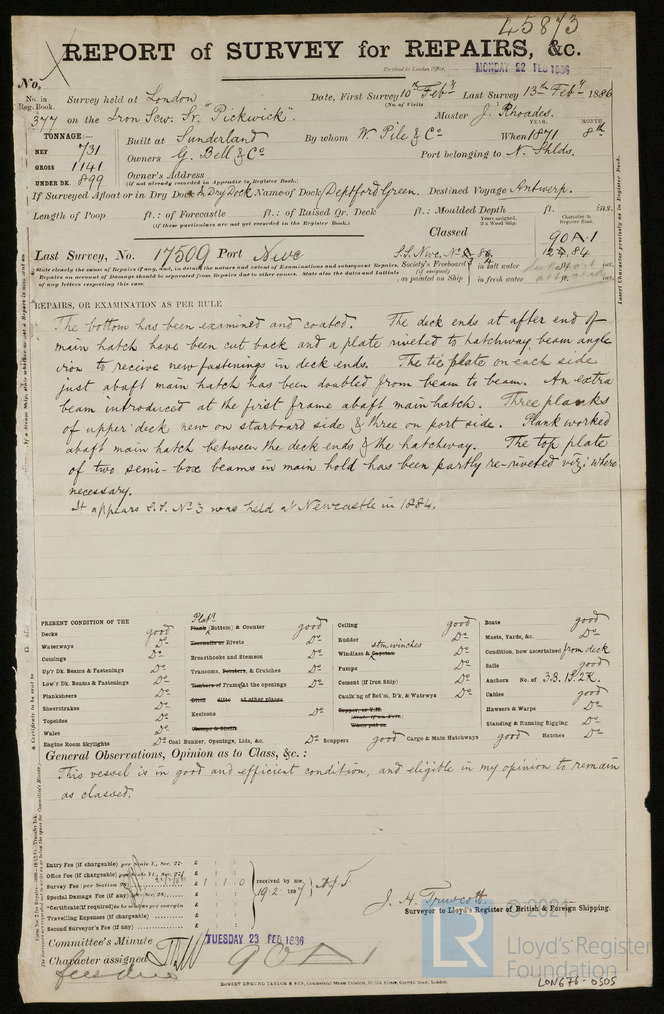 45873
REPORT of SURVEY for REPAIRS, &c.
Received in London Office,
MONDAY 22 FEB 1886
No.
No. in Reg. Book.
Survey held at London Date, First Survey 10th Feby Last Survey 13th Feby 1886
(No. of Visits
377 on the Iron Scw. Sr. "Pickwick". Master J. Rhoades.
TONNAGE:—
NET 731
GROSS 1141
UNDER DK. 899
YEAR. MONTH
Built at Sunderland By whom W. Pile & Co When 1871 8th
Owners G. Bell & Co Port belonging to N. Shlds.
Owner's Address
(if not already recorded in Appendix to Register Book.)
If Surveyed Afloat or in Dry Dock Dry Dock Name of Dock Deptford Green. Destined Voyage Antwerp.
Length of Poop ft.: of Forecastle ft.: of Raised Qr. Deck ft.: Moulded Depth ft. ins.
(if these particulars are not yet recorded in the Register Book.)
Years assigned, if a Wood Ship.
Character in Register Book
Classed 90A1
Last Survey, No. 17509 Port Nwc
S.S. Nwc. No
Society's Freeboard (if assigned) as painted on Ship
in salt water
in fresh water
State clearly the causes of Repairs if any, and, in detail, the nature and extent of Examinations and subsequent Repairs.
Repairs on account of Damage should be separated from Repairs due to other causes. State also the dates and initials
of any letters respecting this case.
Insert Character precisely as in Register Book.
REPAIRS, OR EXAMINATION AS PER RULE
The bottom has been examined and coated. The deck ends at after end of
main hatch have been cut back and a plate riveted to hatchway beam angle
iron to receive new fastenings in deck ends. The tie plate on each side
just abaft main hatch has been doubled from beam to beam. An extra
beam introduced at the first frame abaft main hatch. Three planks
of upper deck new on starboard side & three on port side. Plank worked
abaft main hatch between the deck ends & the hatchway. The top plate
of two semi-box beams in main hold has been partly re-riveted viz: where
necessary.
It appears S.S. No 3 was held at Newcastle in 1884.
PRESENT CONDITION OF THE
Decks good
Waterways Do
Comings Do
Up'r Dk. Beams & Fastenings Do
Low'r Dk. Beams & Fastenings Do
Planksheers Do
Sheerstrakes Do
Topsides Do
Wales Do
Engine Room Skylights Do
Platg
Plank (Bottom) & Counter good
Treenails or Rivets Do
Breasthooks and Stemson Do
Transoms, Pointers, & Crutches Do
Timbers of Frame at the openings Do
Ditto ditto at other places
Keelsons Do
Clamps & Shelfs
Coal Bunker, Openings, Lids, &c. Do
Ceiling good
Rudder Do
stm winches
Windlass & Capstan Do
Pumps Do
Cement (if Iron Ship) Do
Caulk'ng of Bot'm, D'k, & Watrwys Do
Copper, or Y.M.
When put on
Scuppers good Cargo & Main Hatchways good
Boats good
Masts, Yards, &c. Do
Condition, how ascertained from deck
Sails good
Anchors No. of 3.B. 1S. 2K.
Cables good
Hawsers & Warps Do
Standing & Running Rigging Do
Hatches Do
General Observations, Opinion as to Class, &c.:
This vessel is in good and efficient condition, and eligible in my opinion to remain
as classed.
Entry Fee (if chargeable) per Scale I., Sec. 27
Office Fee (if chargeable) per Scale II., Sec. 27
Survey Fee (per Section 28) £ 1 1 0
Special Damage Fee (if any) (per Sec. 28)
Certificate (if required) to be sent as per margin
Travelling Expenses (if chargeable)
Second Surveyor's Fee (if any)
received by me,
19.2.1886
J. H. Truscott.
Surveyor to Lloyd's Register of British & Foreign Shipping.
Committee's Minute TUESDAY 23 FEB 1886
Character assigned 90A1
fees due
ROBERT EDMUND TAYLOR & SON, Commercial Steam Printers, 19, Old Street, Goswell Road, London.
© 2021
LR
Lloyd's Register
Foundation
LON676-0505